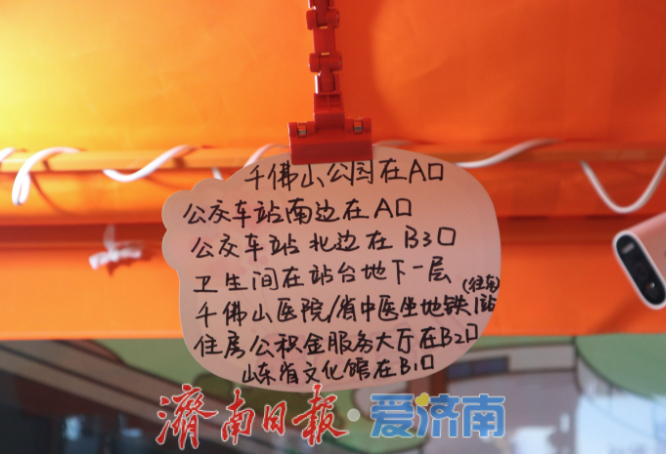 千佛山公园在A口
公交车站南边在A口
公交车站北边在B3口
卫生间在站台地下一层
千佛山医院/省中医坐地铁1站(往东)
住房公积金服务大厅在B2口
山东省文化馆在B1口
濟南日報·爱济南